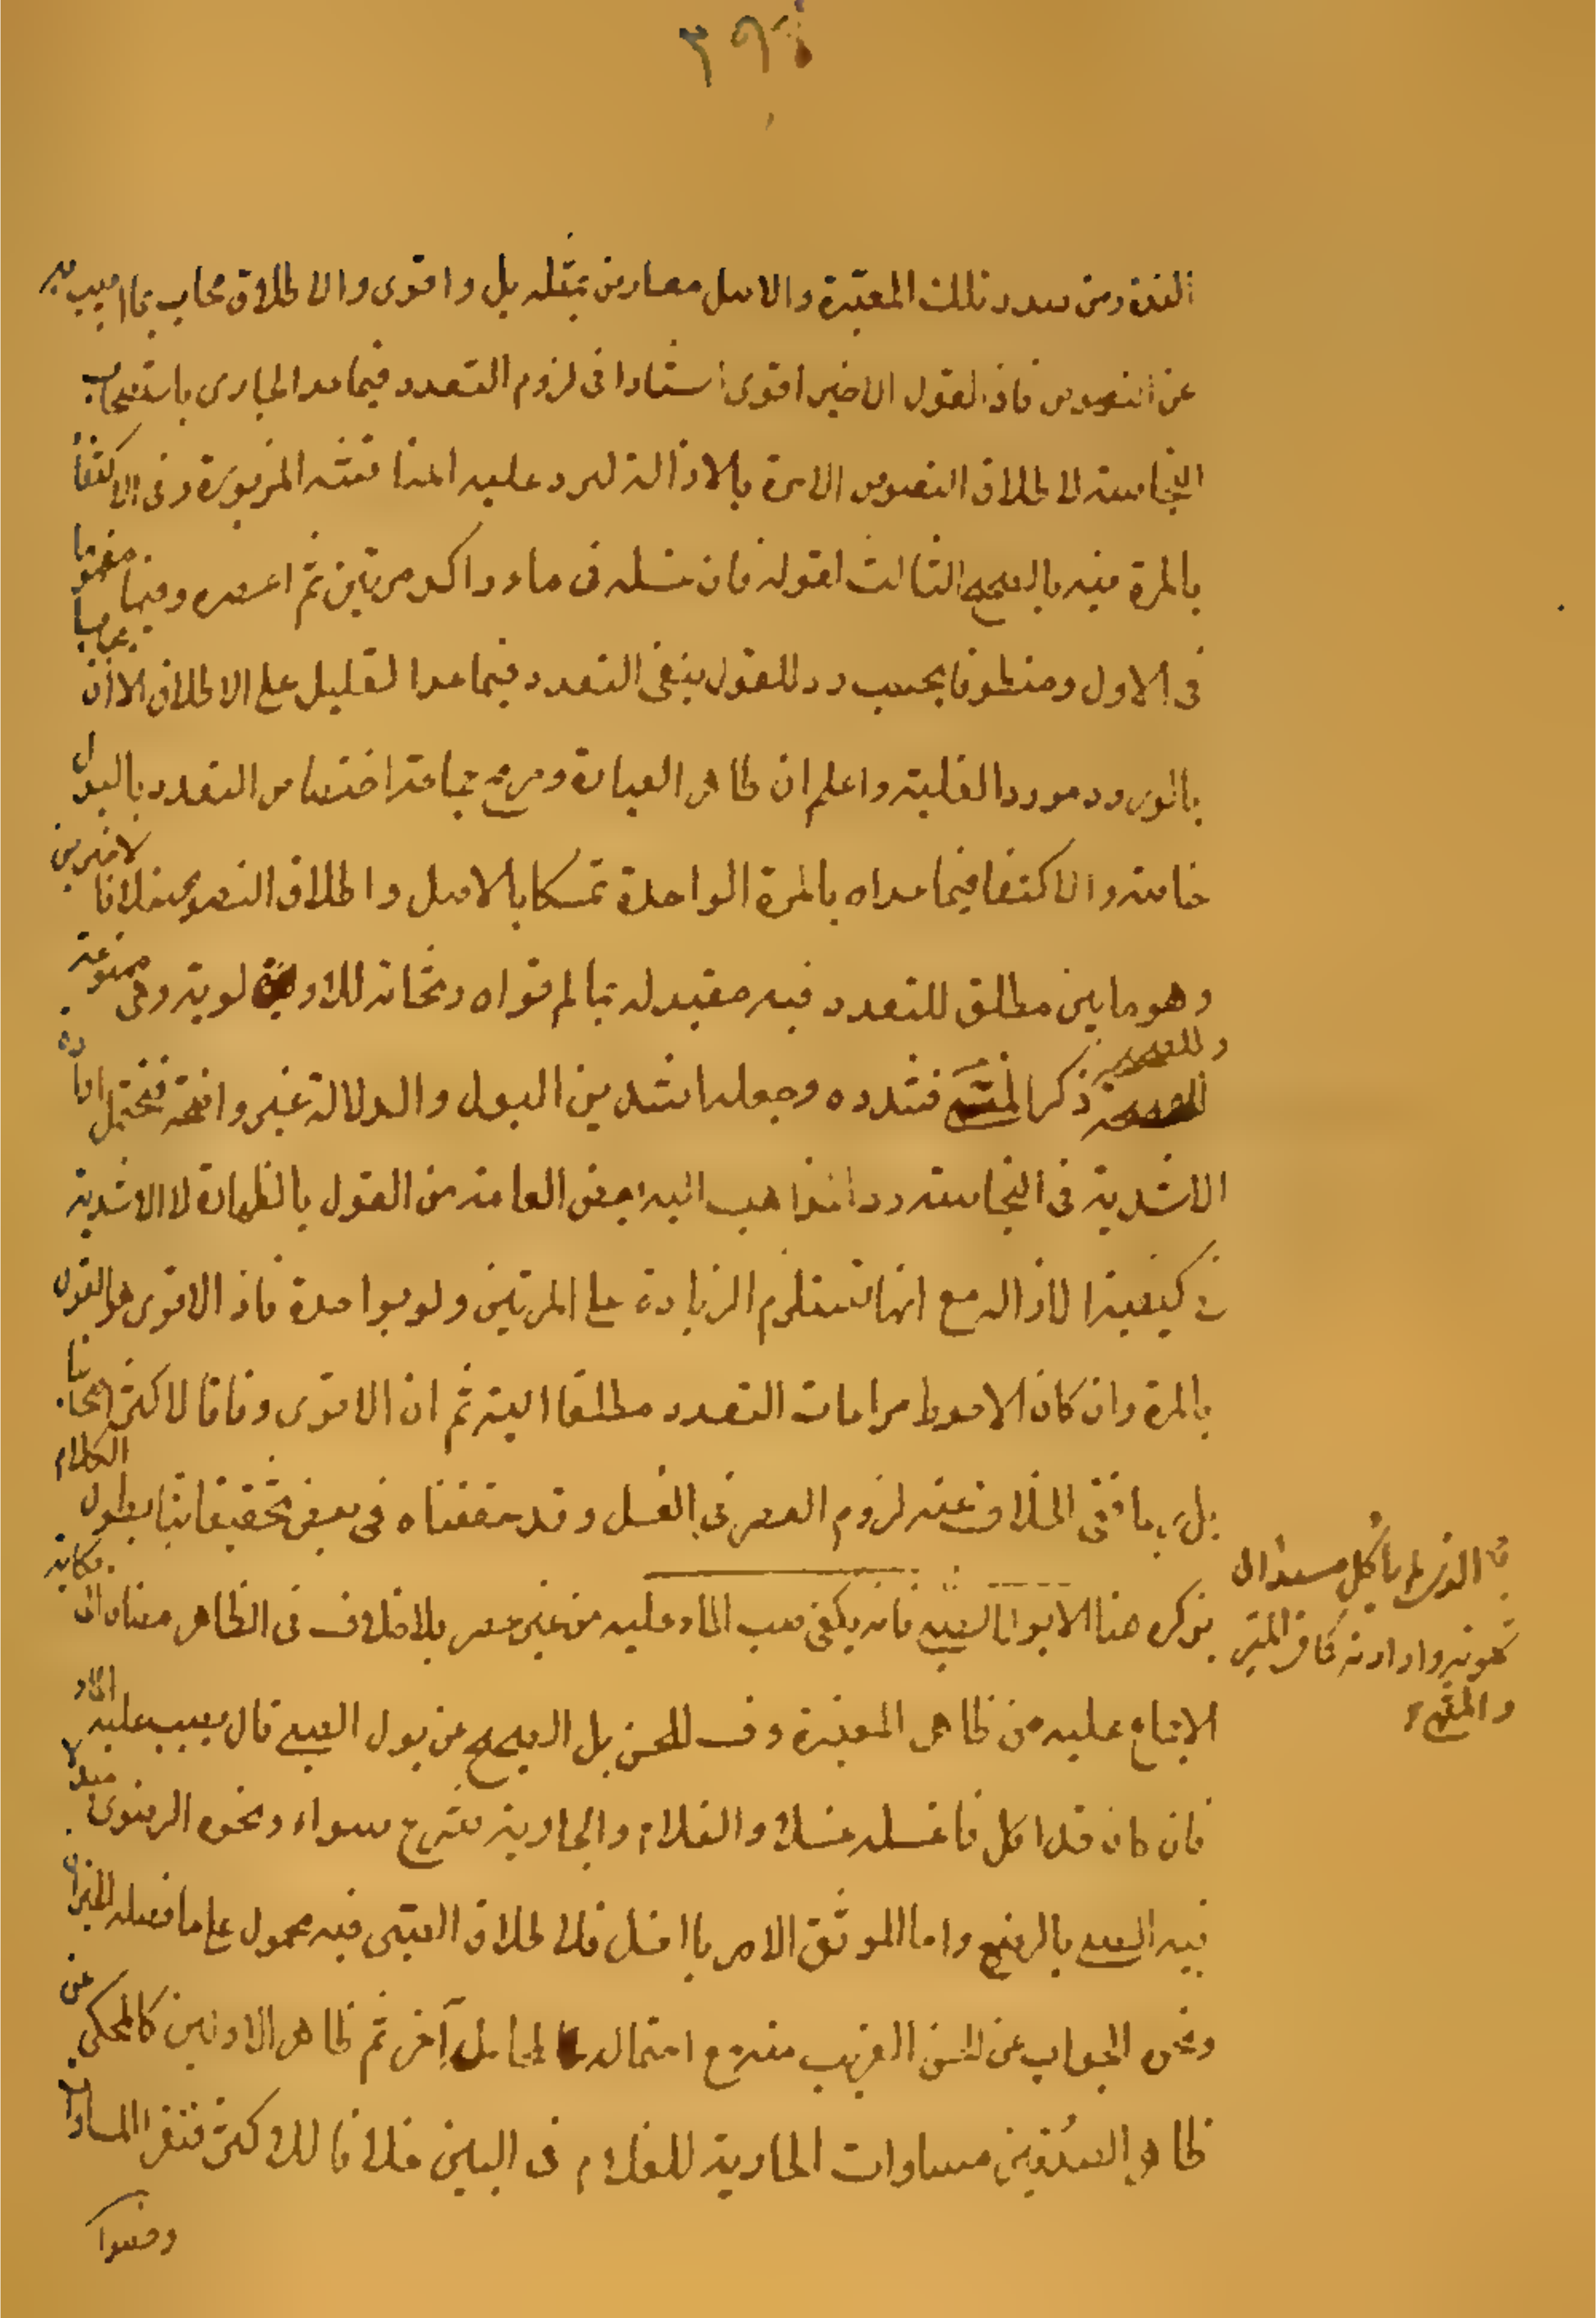 ٣٩٤
الندرة ومن سدد تلك المعتبرة والاصل معارض بمثله بل واقوى والاطلاق مجاب بما اجيب به
عن النصوص فاذا القول الاخير اقوى استنادا فى لزوم التعدد فيما عدا الجارى باستصحاب
النجاسة لاطلاق النصوص الامرة بالازالة ليرد عليه المناقشة المزبورة وفى الاكتفاء
بالمرة فيه بالصحيح الثالث لقوله فان غسله فى ماء راكد مرتين ثم اعصره وفيها مفهوما
فى الاول ومنطوقا بحسب رد للقول بنفى التعدد فيما عدا القليل على الاطلاق الا ان
بالورود مورد الغلبة واعلم ان ظاهر العبارة وصريح جماعة اختصاص التعدد بالبول
خاصة والاكتفا فيما عداه بالمرة الواحدة تمسكا بالاصل واطلاق النصوص خلافا لاخرين
وهو ما بين مطلق للتعدد فيه مقيد له بما لم قواه وثخانة للاولوية وهى ممنوعة
وللصحيح ذكر المنى فشدده وجعله اشد من البول والدلالة غير واضحة فيحتمل ارادة
الاشدية فى النجاسة ردا لما ذهب اليه بعض العامة من القول بالطهارة لا الاشدية
فى كيفية الازاله مع انها تستلزم الزيادة على المرتين ولو بواحدة فاذا الاقوى هو القول
بالمرة وان كان الاحوط مراعات التعدد مطلقا البتة ثم ان الاقوى وفاقا لاكثر اصحابنا
بل ربما نفى الخلاف عنه لزوم العصر فى الغسل وقد حققناه فى بعض تحقيقاتنا يطول الكلام
بذكره هنا الا بول الصبى فانه يكفى صب الماء عليه من غير عصر بلا خلاف فى الظاهر مضافا الى حكاية
قبل الفرط باكل مستند الى
شهوته وارادته كما فى المعتبر
والمنتهى
الاجماع عليه من ظاهر المعتبرة وفى للحسن بل الصحيح عن بول الصبى قال يصب عليه الماء
فان كان قد اكل فاغسله غسلا والغلام والجارية شرع سواء ونحوه الرضوى مبدلا
فيه الصبى بالرضيع واما الموثق الامر بالغسل فلاطلاق الصبى فيه محمول على ما فصله الخبران
ونحوه الجواب عن الحسن القريب منه مع احتماله لمحامل آخر ثم ظاهر الاولين كالمحكى عن
ظاهر الصدوقين مساوات الجارية للغلام فى البين خلافا للاكثر فنفوا المساواة
وخصوا